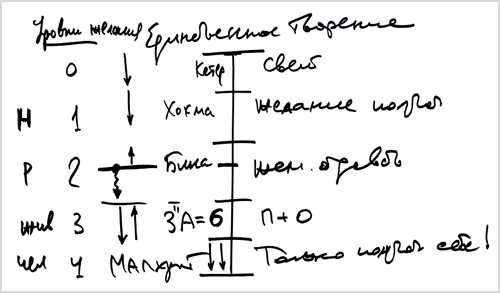 Уровни желания Единственное Творение
0 Кетер свет
Н 1 Хохма желание получ
Р 2 Бина жел. отдавать
жив 3 З"А=6 П+О
чел 4 Малхут Только получ себе!